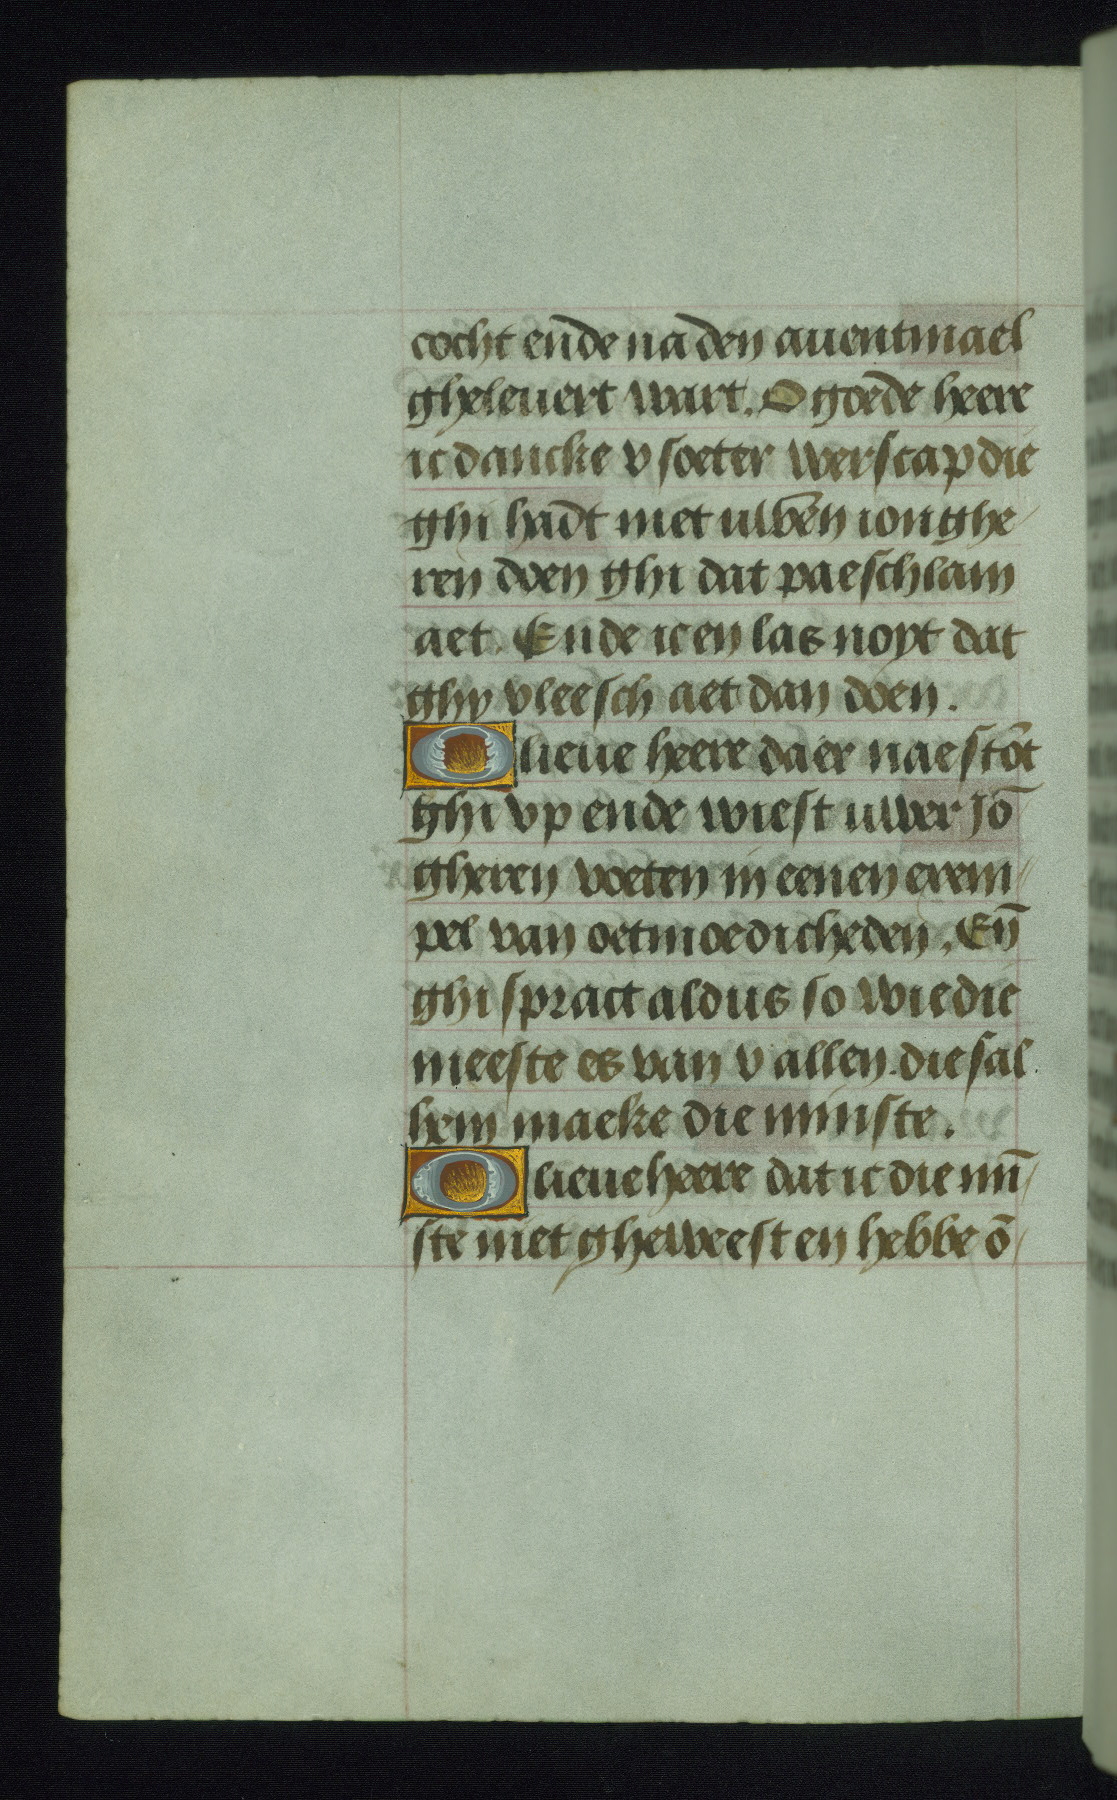 cocht ende na den auentmael
gheleuert wart. O goede heere
ic dancke v soeter werscap die
ghi hadt met uwen ionghe/
ren doen ghi dat paeschlam
aet. Ende ic en las noyt dat
ghy vleesch aet dan doen.
O lieue heere daer nae stōt
ghi vp ende wiest uwer Jō
gheren voeten in eenen exem/
pel van oetmoedicheden. Eñ
ghi spract aldus so wie die
meeste es van v allen. die sal
hem maeke die minste.
O lieue heere dat ic die mī/
ste niet gheweest en hebbe ō/